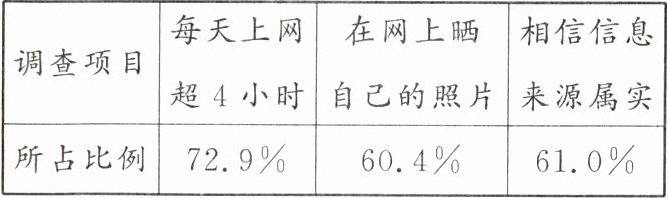 调查项目
每天上网
超4小时
在网上晒
自己的照片
相信信息
来源属实
所占比例 72.9% 60.4% 61.0%